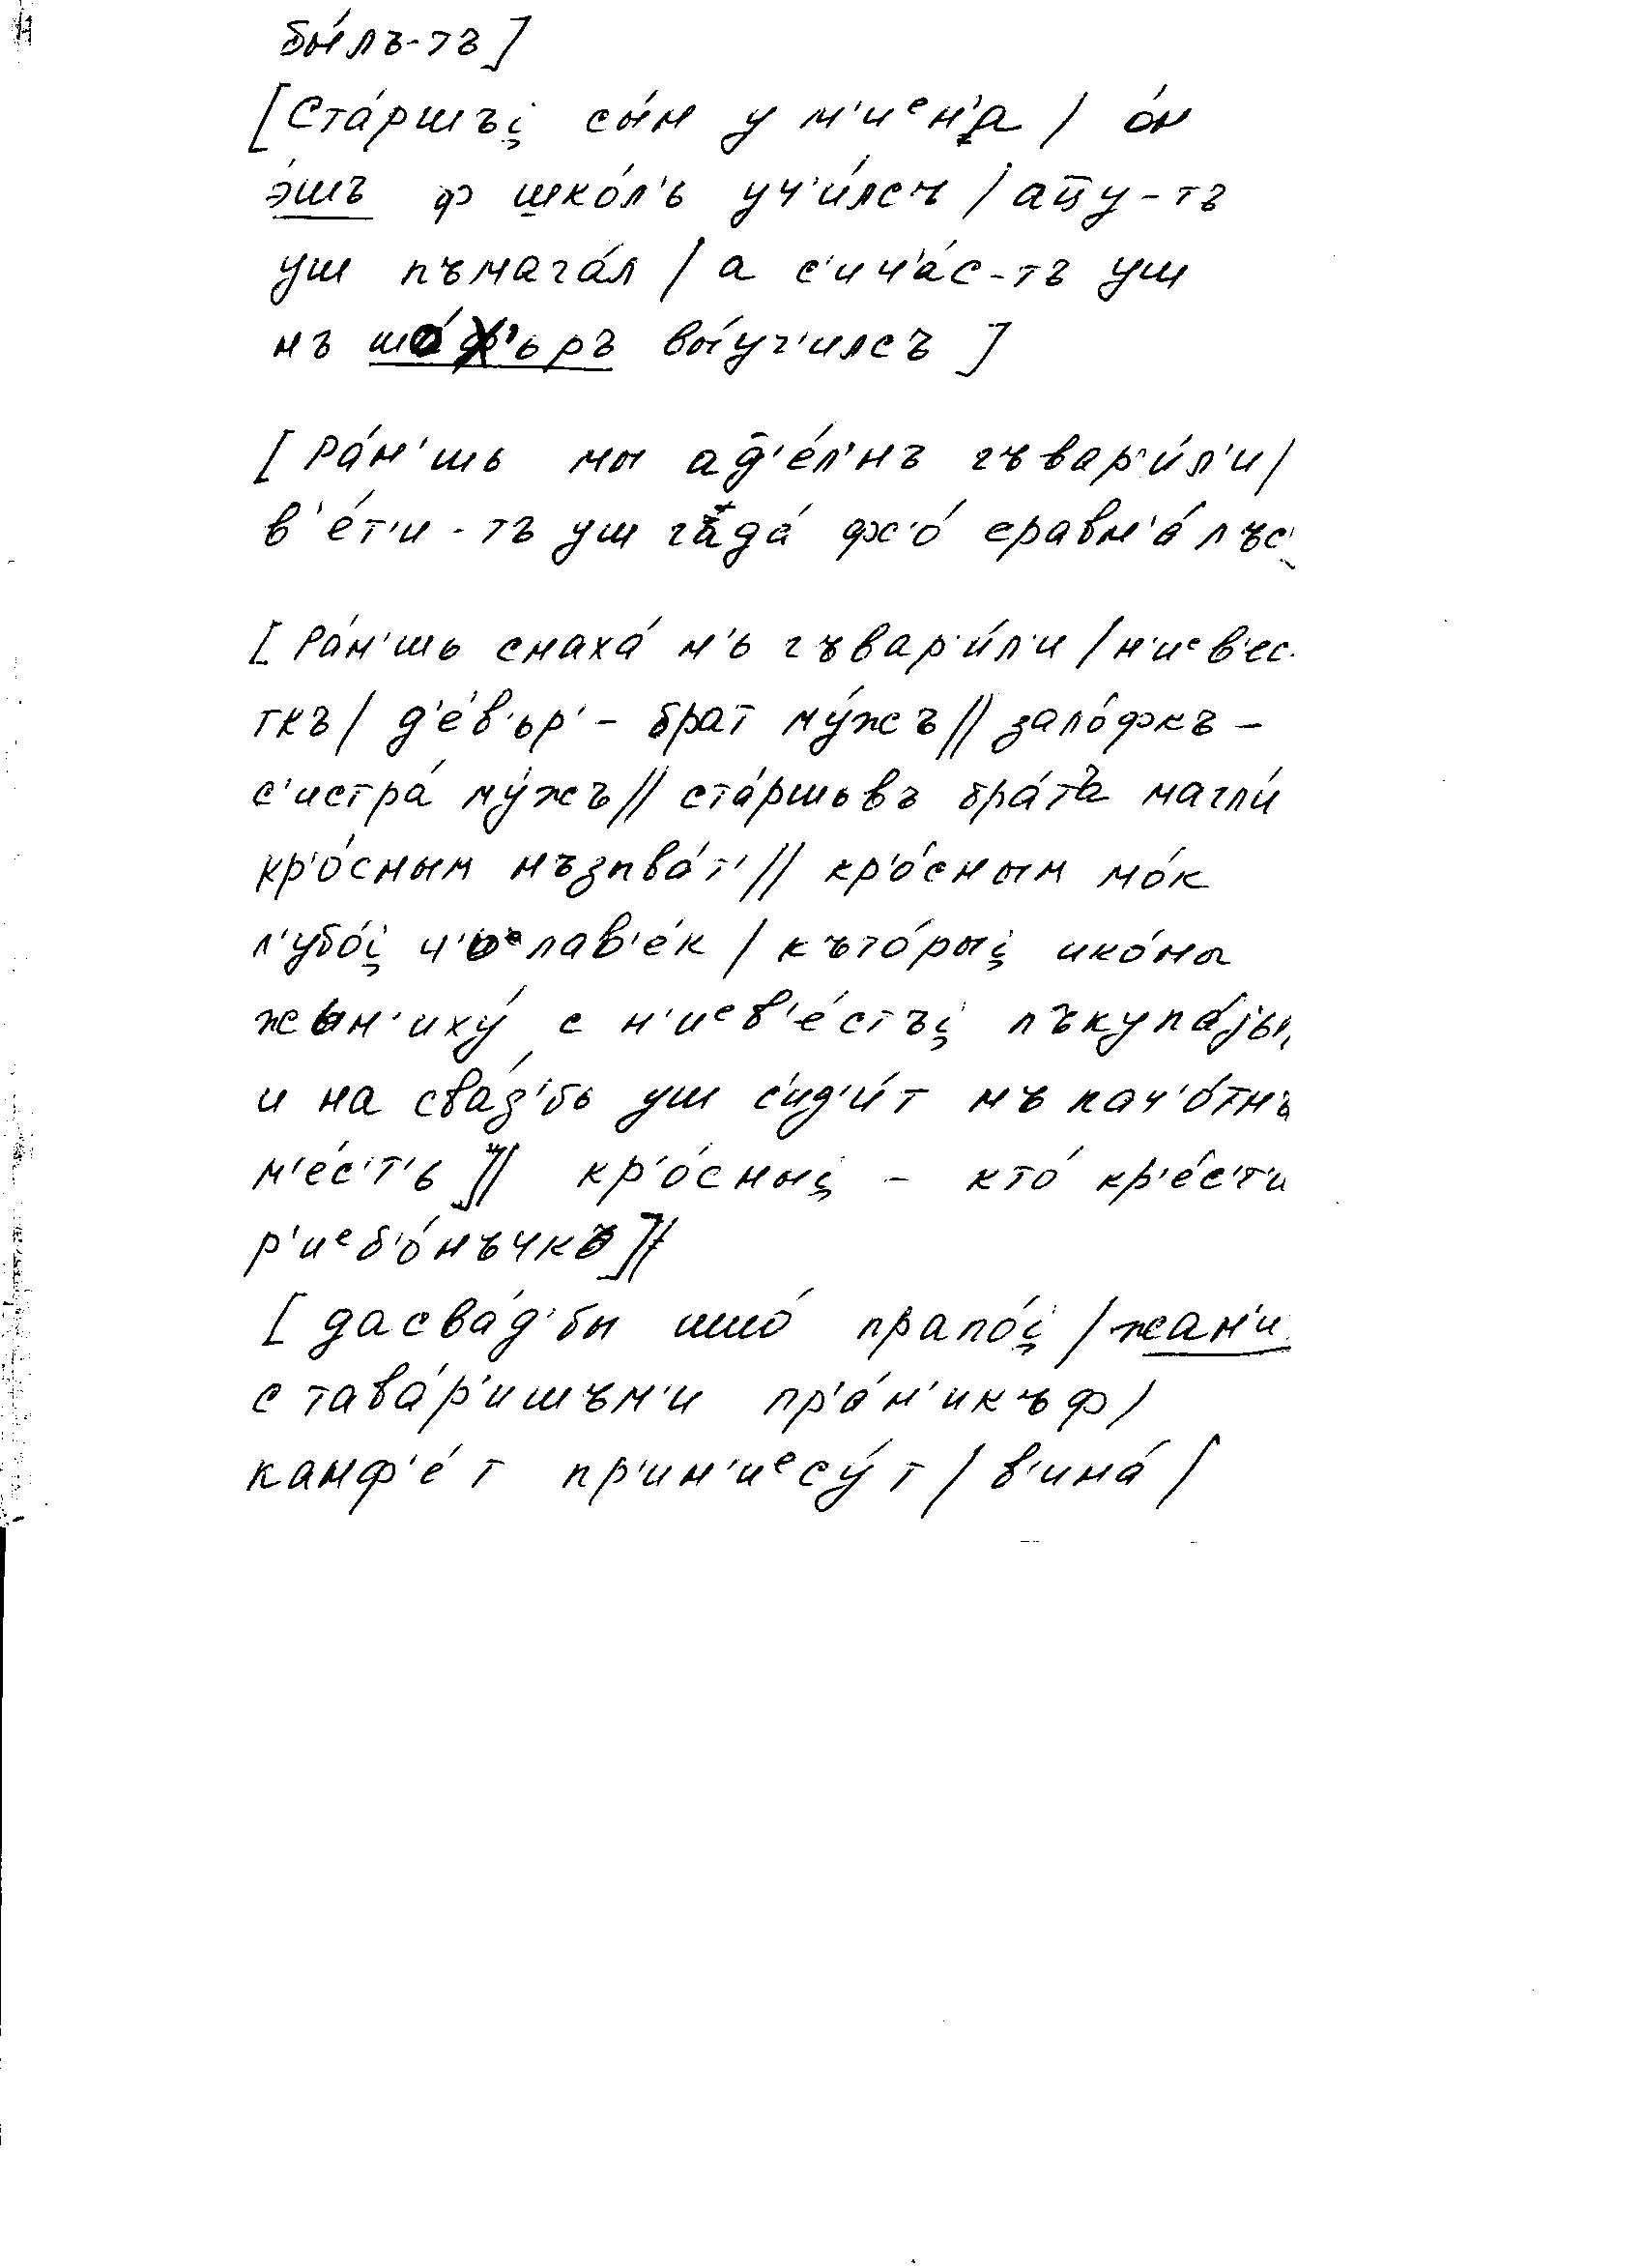 бы́лъ-тъ]
[Ста́ршъi̯ сы́н у м'иен'а́ / о́н
э́шъ ф шко́л'ь уч'и́лсъ / ацу-тъ
уш пъмага́л / а с'ич'а́с-тъ уш
нъ шо́ф'ьръ вы́уч'илсъ ]
[ Ра́н'шь мы ад'е́л'нъ гъвар'и́л'и /
в'е́т'и-тъ уш гада́ фс'о́ сравн'а́лъс'
[ Ра́н'шь снаха́ н'ь гъвар'и́л'и / н'иев'ес-
ткъ / д'е́в'ьр' - брат му́жъ // зало́фкъ -
с'истра́ му́жъ // ста́ршьвъ бра́тъ магли́
кр'о́сным нъзпва́т' // кр'о́сным мо́к
л'убо́i̯ ч'иелав'е́к / къто́рыi̯ ико́ны
жын'иху́ с н'иев'е́стъi̯ пъкупа́jьт
и на сва́д'бь уш с'ид'и́т нъ пач'о́тнъ
м'е́с'т'ь ]// кр'о́сныi̯ - кто́ кр'е́с'т'и
р'иеб'о́нъчкъ ]//
[ дасва́д'бы ишо́ прапо́i̯ / жан'и
с тава́р'ишъм'и пр'а́н'икъф /
канф'е́т пр'ин'иесу́т / в'ина́ /